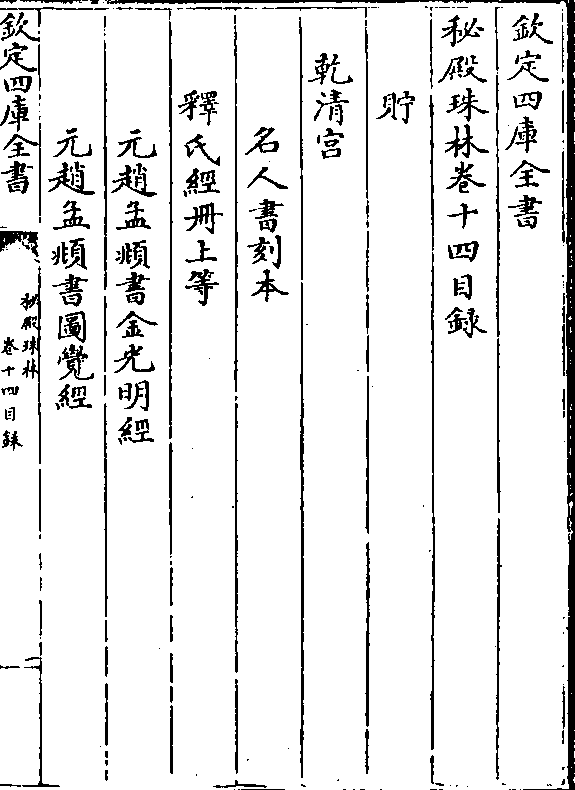 欽定四庫全書
秘殿珠林卷十四目録
貯
乾清宮
名人書刻本
釋氏經冊上等
元趙孟頫書金光明經
元趙孟頫書圓覺經
欽定四庫全書
秘殿珠林
卷十四目録